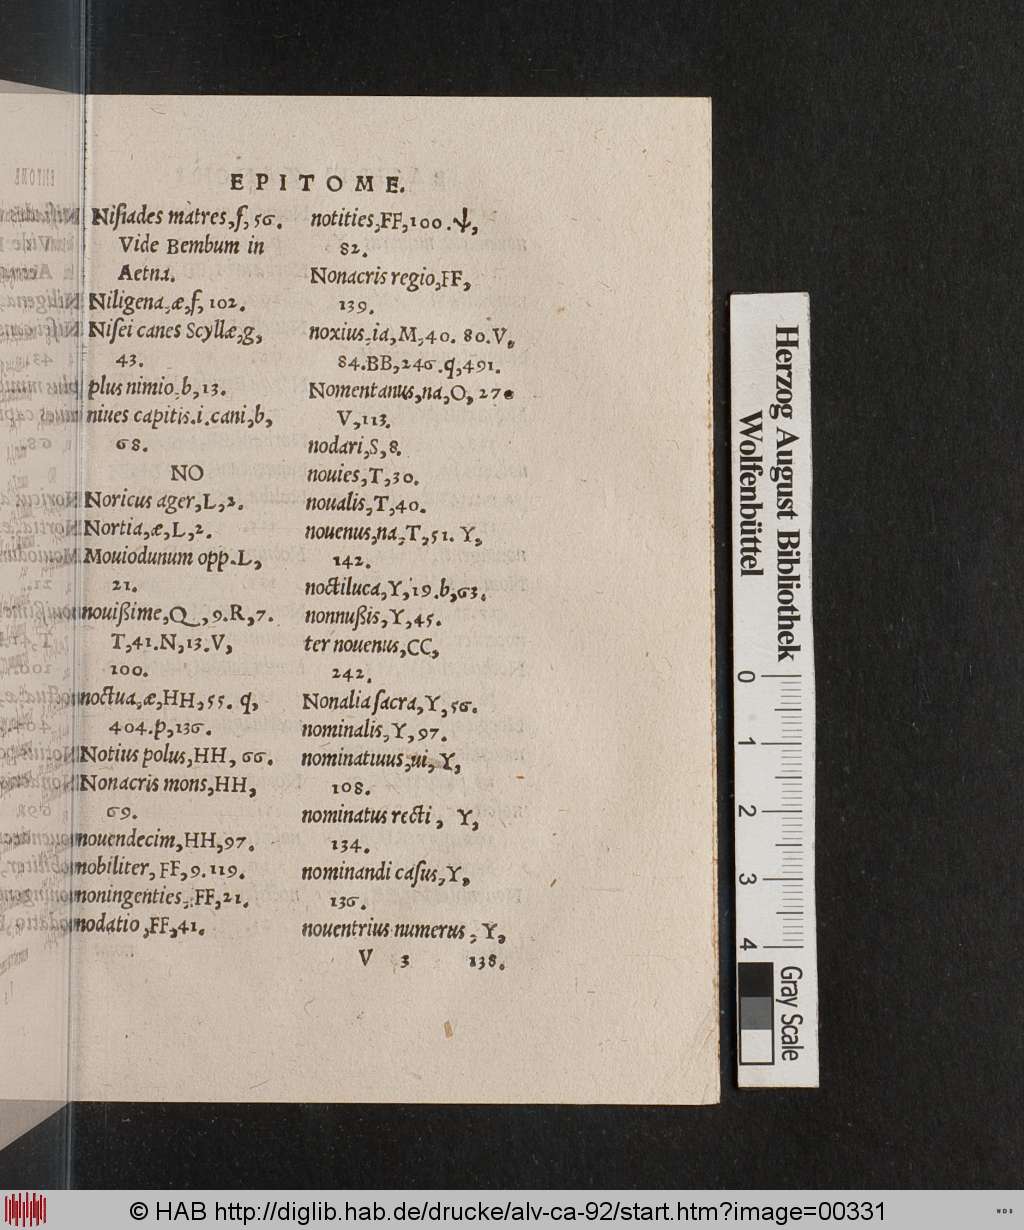 EPITOME.
Nisiades matres, f, 56.
Vide Bembum in
Aetna.
Niligena, æ, f, 102.
Nisei canes Scyllæ, g,
43.
plus nimio, b, 13.
niues capitis.i.cani, b,
68.
NO
Noricus ager, L, 2.
Nortia, æ, L, 2.
Mouiodunum opp. L,
21.
nouißime, Q, 9. R, 7.
T, 41. N, 13. V,
100.
noctua, æ, HH, 55. q,
404. p, 136.
Notius polus, HH, 66.
Nonacris mons, HH,
69.
nouendecim, HH, 97.
nobiliter, FF, 9. 119.
noningenties, FF, 21.
nodatio, FF, 41.
notities, FF, 100. ψ,
82.
Nonacris regio, FF,
139.
noxius, ia, M, 40. 80. V,
84. BB, 246. q, 491.
Nomentanus, na, O, 27.
V, 113.
nodari, S, 8.
nouies, T, 30.
noualis, T, 40.
nouenus, na, T, 51. Y,
142.
noctiluca, Y, 19. b, 63.
nonnußis, Y, 45.
ter nouenus, CC,
242.
Nonalia sacra, Y, 56.
nominalis, Y, 97.
nominatiuus, ui, Y,
108.
nominatus recti, Y,
134.
nominandi casus, Y,
136.
nouentrius numerus, Y,
V 3 138.
Herzog August Bibliothek
Wolfenbüttel
0 1 2 3 4
Gray Scale
© HAB http://diglib.hab.de/drucke/alv-ca-92/start.htm?image=00331